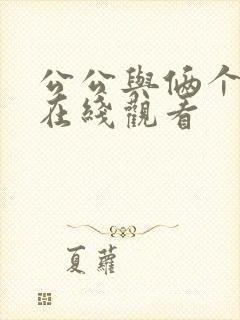 公公與俩个
在綫觀看
夏蘿